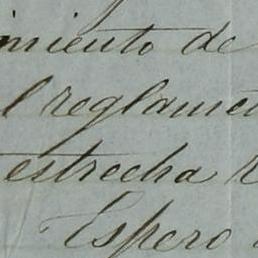 miento de
l reglame
estrecha r
Espero